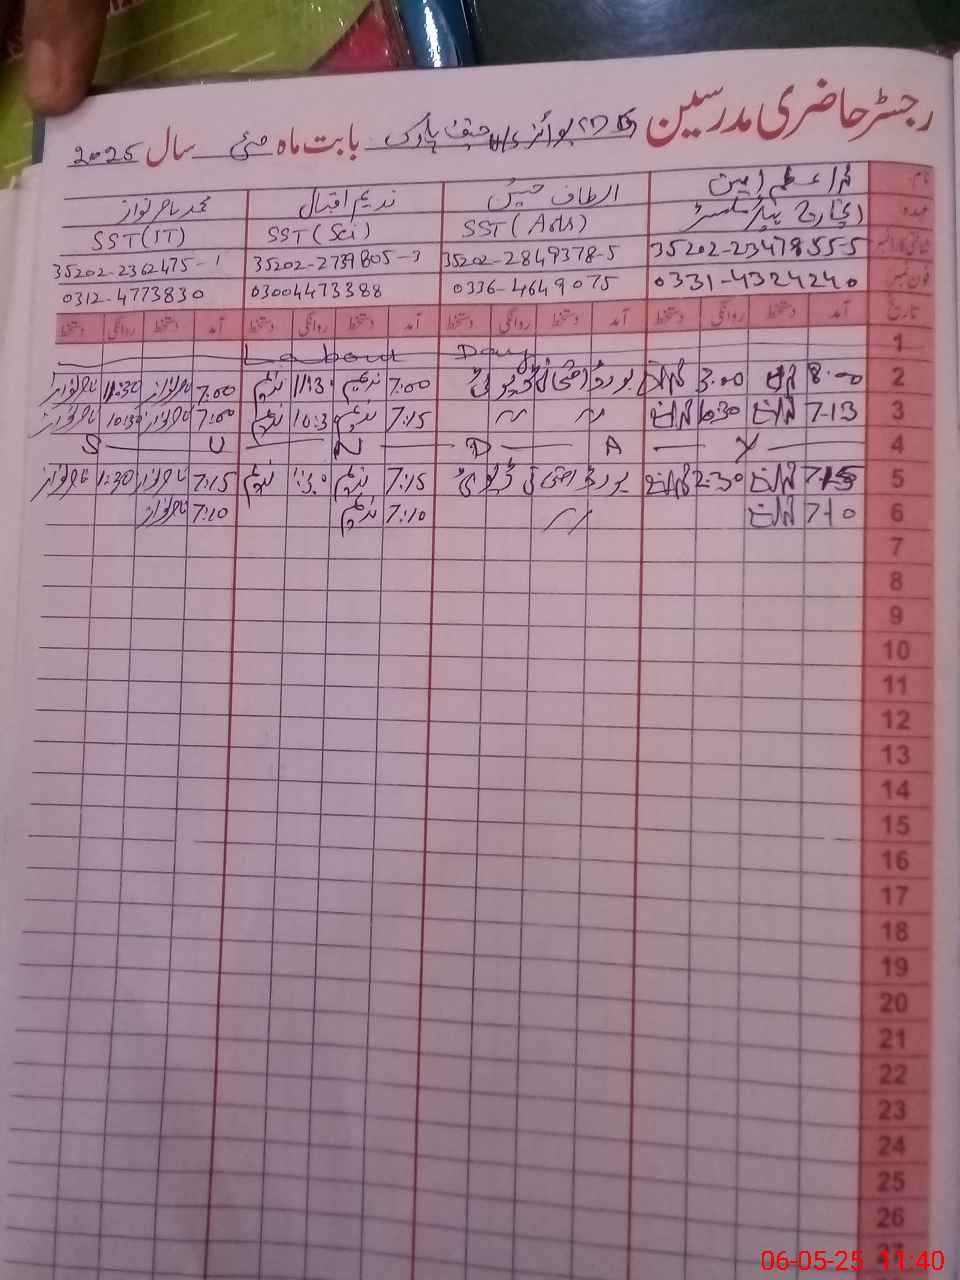 رجسٹر حاضری مدرسین بوائز H/S حنیف پارک بابت ماہ مئی سال 2025
نام محمد اعظم امین الطاف حسین ندیم اقبال محمد طاہر نواز
عہدہ انچارج ہیڈ ماسٹر SST (Arts) SST (Sci) SST (IT)
شناختی کارڈ نمبر 35202-2347855-5 35202-2849378-5 35202-2739805-3 35202-2362475-1
فون نمبر 0331-4324240 0336-4649075 03004473388 0312-4773830
تاریخ آمد دستخط روانگی دستخط آمد دستخط روانگی دستخط آمد دستخط روانگی دستخط آمد دستخط روانگی دستخط
1 Labour Day
2 8:00 3:00 بورڈ ڈیوٹی 7:00 ندیم 11:3 ندیم 7:00 طاہر نواز 11:30 طاہر نواز
3 7:13 10:30 〃 〃 7:15 ندیم 10:3 ندیم 7:00 طاہر نواز 10:30 طاہر نواز
4 S U N D A Y
5 7:15 2:30 بورڈ ڈیوٹی 7:15 ندیم 1:30 ندیم 7:15 طاہر نواز 1:30 طاہر نواز
6 7:10 〃 7:10 ندیم 7:10 طاہر نواز
7
8
9
10
11
12
13
14
15
16
17
18
19
20
21
22
23
24
25
26
27
06-05-25 11:40